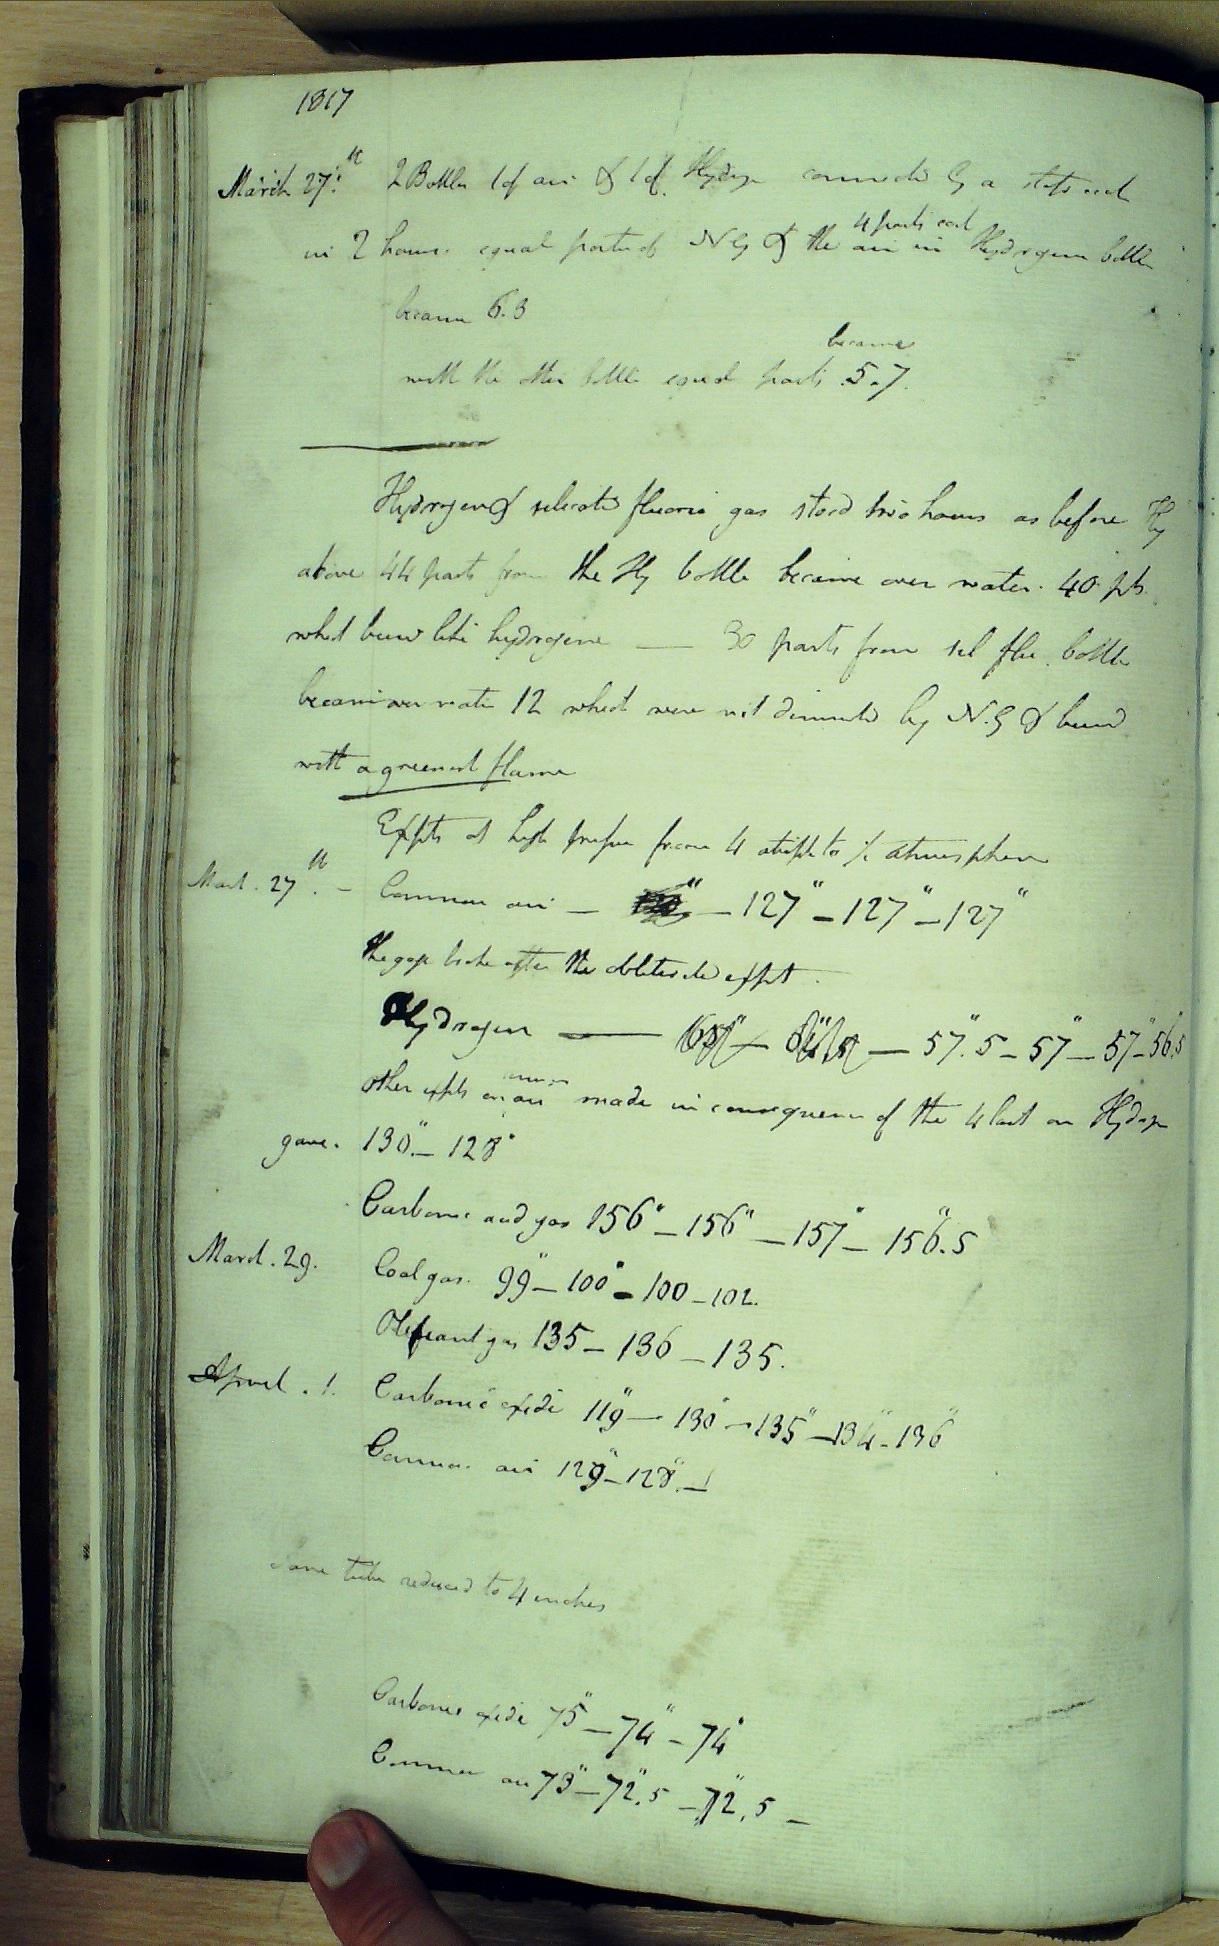 1817
March 27th 2 Bottles 1 of air & 1 of Hydrogn connected by a stop cock
in 2 hours equal parts of N G & the air in Hydrogen bottle
4 parts each
became 6.3
became
with the other bottle equal parts 5.7.
Hydrogen & silicated fluoric gas stood two hours as before Hy
above 44 parts from the Hy bottle became over water. 40 pts
which burnd like hydrogene — 30 parts from sil flu. bottle
became over water 12 which were not diminishd by N.G & burnd
with a greenish flame
Expts at high pressure from 4 atmosphere
March. 27th. — Common air — — 127" — 127" — 127"
the gage broke after the obliterated expt.
Hydrogen — — 57".5 — 57" — 57" — 56.5
other expts on air made in consequence of the 4 last on Hydrogn
common
gave. 130" — 128"
Carbonic acid gas 156" — 156" — 157" — 156".5
March. 29. Coal gas. 99" — 100" — 100 — 102.
Olefiant gas 135 — 136 — 135.
April. 1. Carbonic oxide 119" — 130" — 135" — 134" — 136"
Common air 129" — 128". —
Same tube reduced to 4 inches
Carbonic oxide 75" — 74" — 74"
Common air 73" — 72".5 — 72".5 —